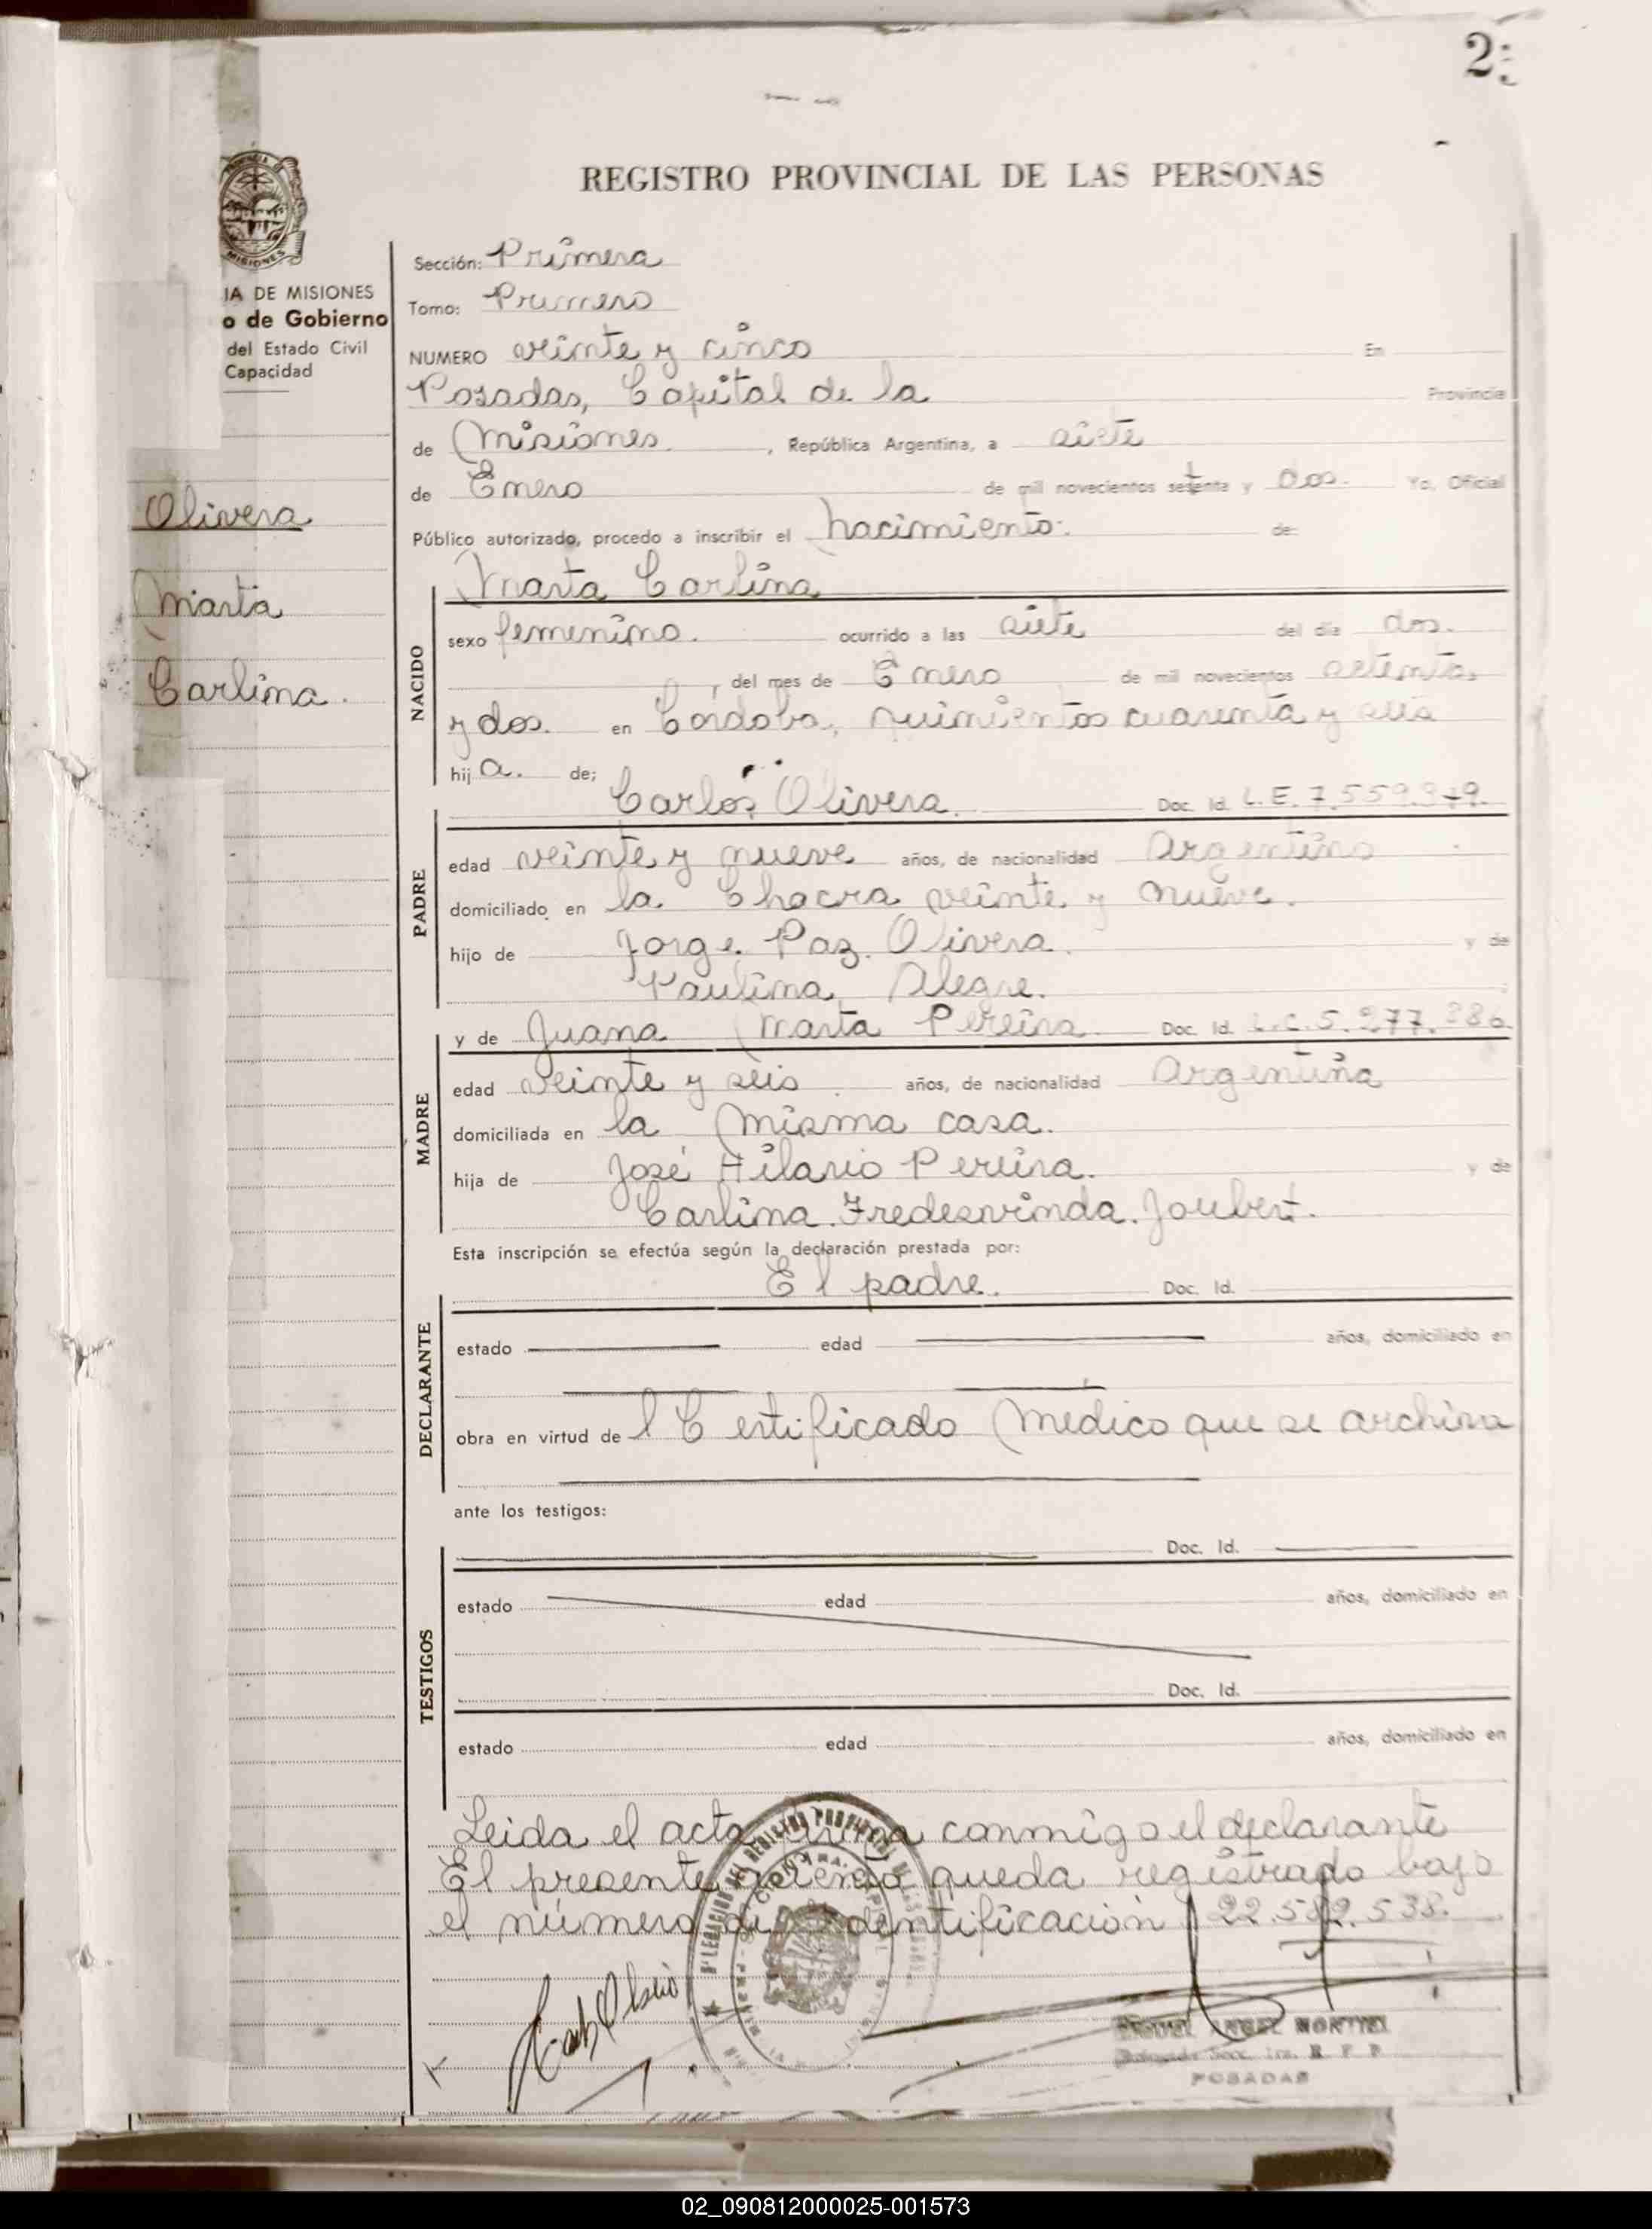 2
REGISTRO PROVINCIAL DE LAS PERSONAS
MISIONES
IA DE MISIONES
o de Gobierno
del Estado Civil
Capacidad
Olivera
Marta
Carlina.
Sección: Primera
Tomo: Primero
NUMERO veinte y cinco En
Posadas, Capital de la Provincia
de Misiones. , República Argentina, a siete
de Enero de mil novecientos setenta y dos. Yo, Oficial
Público autorizado, procedo a inscribir el nacimiento. de:
NACIDO
Marta Carlina
sexo femenino. ocurrido a las siete del día dos.
, del mes de Enero de mil novecientos setenta
y dos. en Córdoba, quinientos cuarenta y seis
hija. de;
PADRE
Carlos Olivera. Doc. Id. L.E. 7.559.
edad veinte y nueve años, de nacionalidad Argentino
domiciliado en la Chacra veinte y nueve.
hijo de Jorge Paz Olivera. y de
Paulina Alegre.
MADRE
y de Juana Marta Pereira Doc. Id. L.C. 5.277.
edad veinte y seis años, de nacionalidad Argentina
domiciliada en la misma casa.
hija de José Hilario Pereira. y de
Carlina Fredesvinda Joubert.
Esta inscripción se efectúa según la declaración prestada por:
DECLARANTE
El padre. Doc. Id.
estado edad años, domiciliado en
obra en virtud del Certificado Medico que se archiva
ante los testigos:
TESTIGOS
Doc. Id.
estado edad años, domiciliado en
Doc. Id.
estado edad años, domiciliado en
Leida el acta firma conmigo el declarante
El presente queda registrado bajo
el número de identificación 22.582.538.
MIGUEL ANGEL MONTIEL
Delegado Secc. 1ra. R. P. P.
POSADAS
02_090812000025-001573